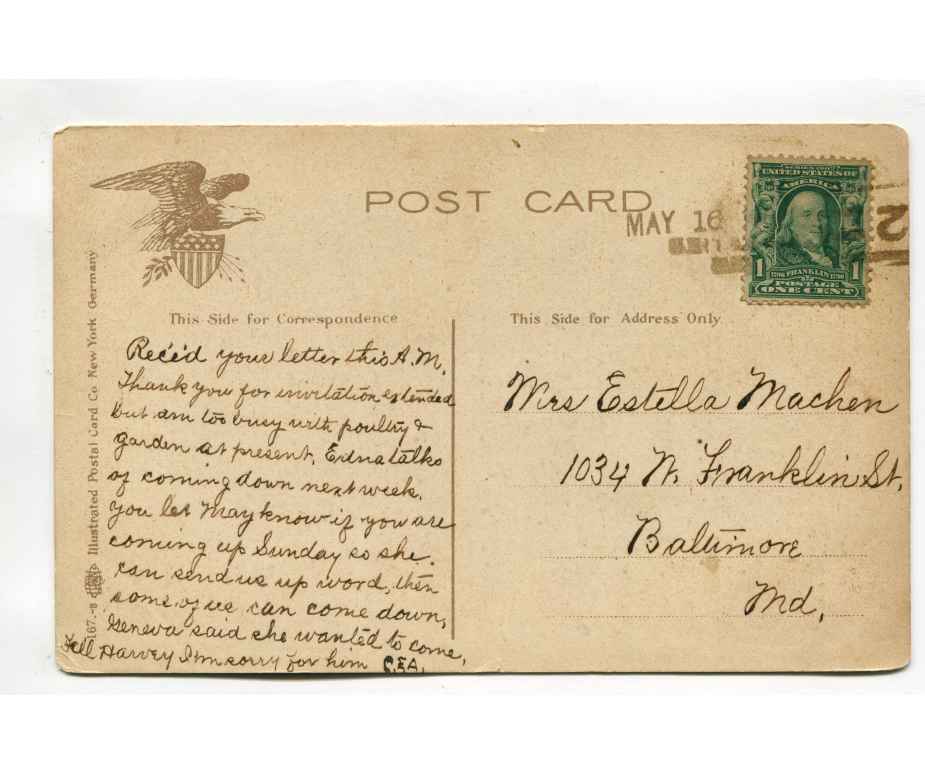 POST CARD
MAY 16
2
SERIES 1902
UNITED STATES OF
AMERICA
1 FRANKLIN 1
POSTAGE
ONE CENT
This Side for Correspondence
This Side for Address Only
Rec'd your letter this A.M.
Thank you for invitation extended
but am too busy with poultry &
garden at present, Edna talks
of coming down next week.
You let May know if you are
coming up Sunday so she
can send us up word, then
some of us can come down,
Geneva said she wanted to come,
Tell Harvey I'm sorry for him C.E.A.
Mrs Estella Machen
1034 W. Franklin St,
Baltimore
Md,
167.-8 Illustrated Postal Card Co New York Germany